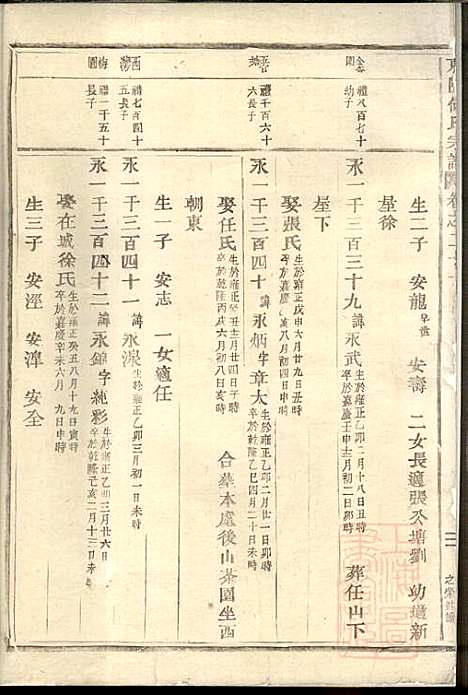 生二子 安龍早世 安壽 二女長適張公塘劉 幼適新
屋徐
金園 禮八百七十幼子
永一千三百三十九 諱永武 生於雍正乙卯二月十八日丑時 卒於嘉慶壬申十月初二日時 葬任山下
屋下
娶張氏 生於雍正戊申六月廿九日丑時 卒於嘉慶 八月初四日時
禮千百六十六長子
永一千三百四十 諱永炳字章大 生於雍正乙卯二月廿一日未時 卒於乾隆乙巳四月二十日未時
娶任氏 生於雍正癸丑十二月廿四日子時 卒於乾隆丙戌六月初八日亥時 合葬本處後山茶園坐西
朝東
生一子 安志 一女適任
西灣 禮七百四十五長子
永一千三百四十一 諱永淚 生於雍正乙卯三月初一日未時
梅園 禮一千五十長子
永一千三百四十二 諱永錦字純彩 生於雍正乙卯三月廿六日 卒於乾隆己亥二月十三日亥時
娶在城徐氏 生於雍正癸丑八月十九日寅時 卒於嘉慶辛未六月 九日申時
生三子 安涇 安渖 安全